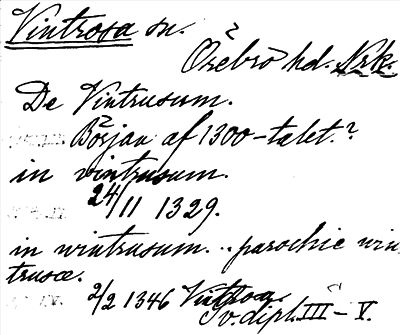 Vintrosa sn.
Örebro hd. Nrk.
De Vintrusum.
Början af 1300-talet.?
in vintrusum.
24/11 1329.
in wintrusum... parochie win-
trusæ.
2/2 1346
Sv. dipl. III-V.